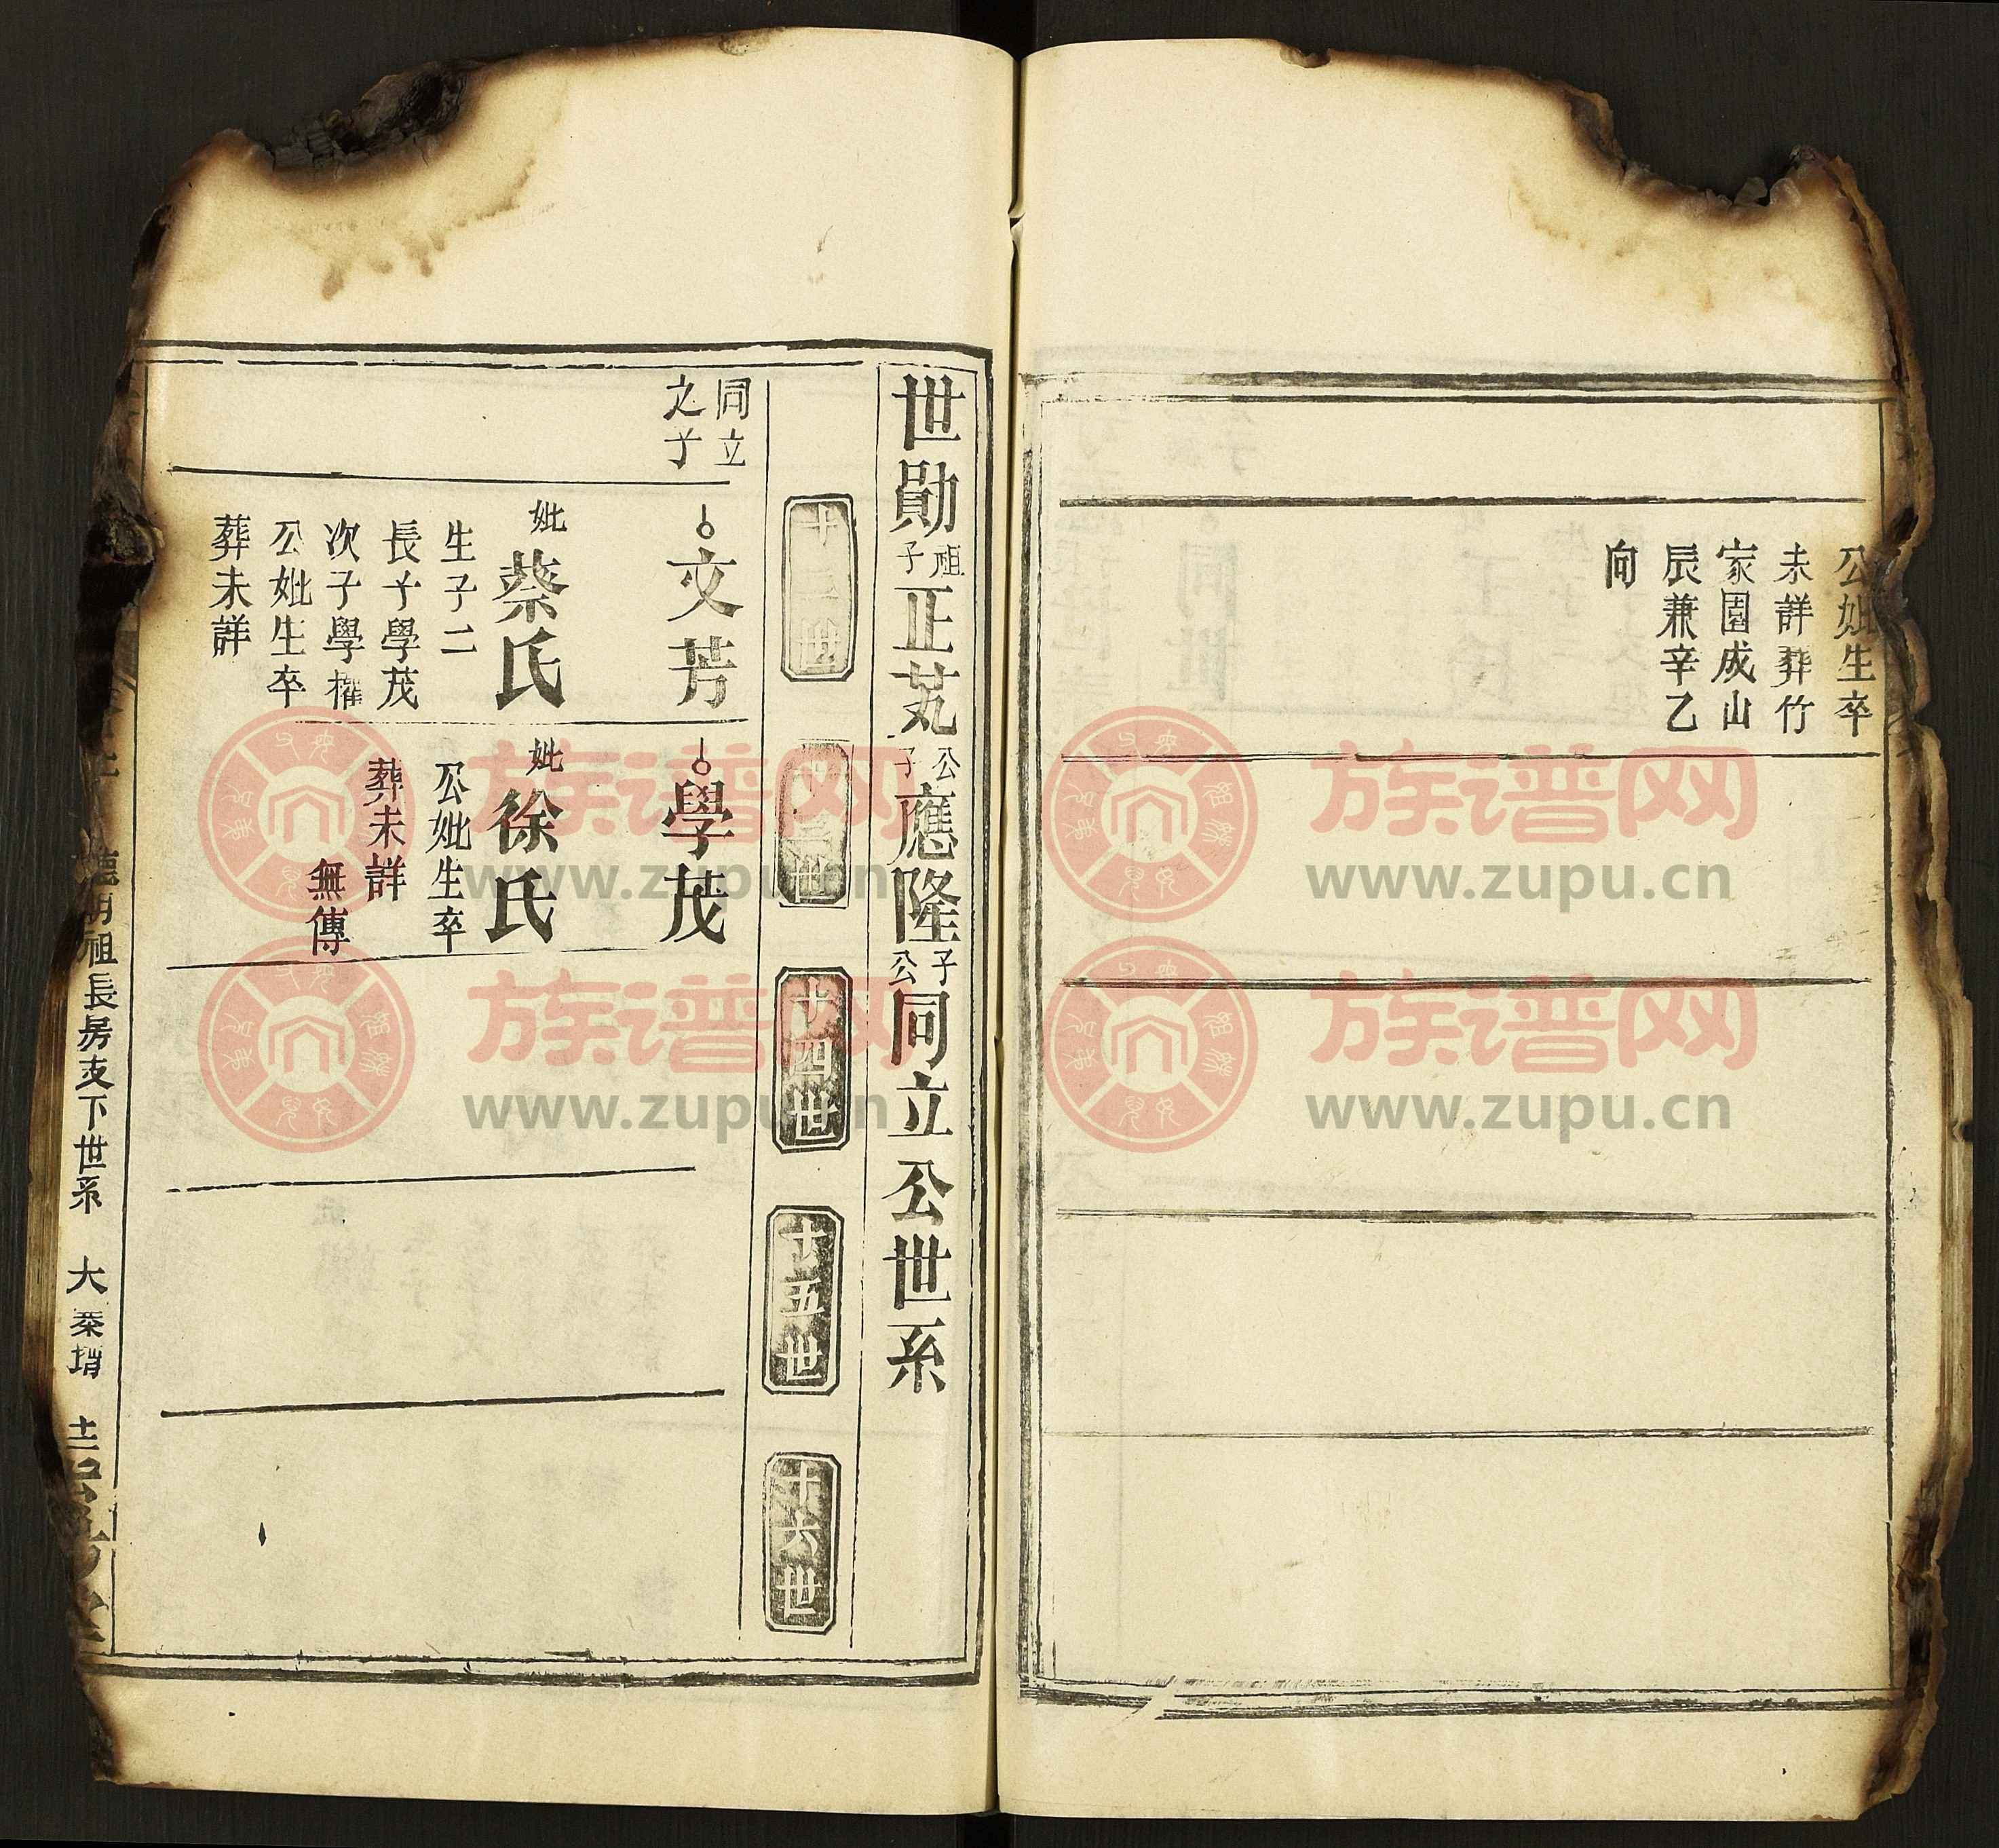 公妣生卒
未詳葬竹
家園成山
辰兼辛乙
向
世勛祖子正芄公子應隆子公同立公世系
十二世
十三世
十四世
十五世
十六世
同立
之子
文芳
妣蔡氏
生子二
長子學茂
次子學權
公妣生卒
葬未詳
學茂
妣徐氏
公妣生卒
葬未詳
無傳
祖長房支下世系
大
族谱网
www.zupu.cn
族谱网
www.zupu.cn
族谱网
www.zupu.cn
族谱网
www.zupu.cn